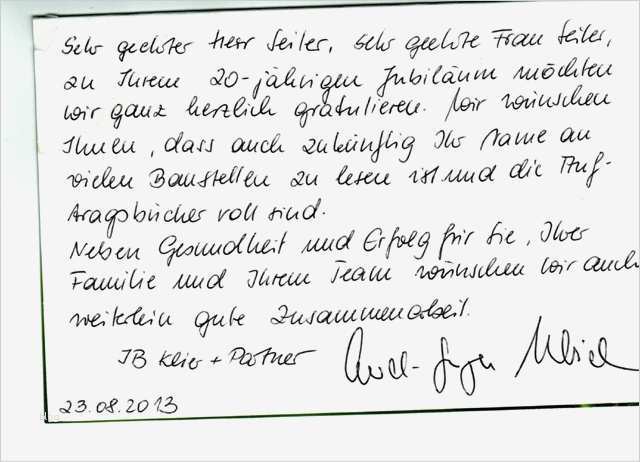 Sehr geehrter Herr Seiler, sehr geehrte Frau Seiler,
zu Ihrem 20-jährigen Jubiläum möchten
wir ganz herzlich gratulieren. Wir wünschen
Ihnen, dass auch zukünftig Ihr Name an
vielen Baustellen zu lesen ist und die Auf-
tragsbücher voll sind.
Neben Gesundheit und Erfolg für Sie, Ihrer
Familie und Ihrem Team wünschen wir auch
weiterhin gute Zusammenarbeit.
IB Klier + Partner
23.08.2013